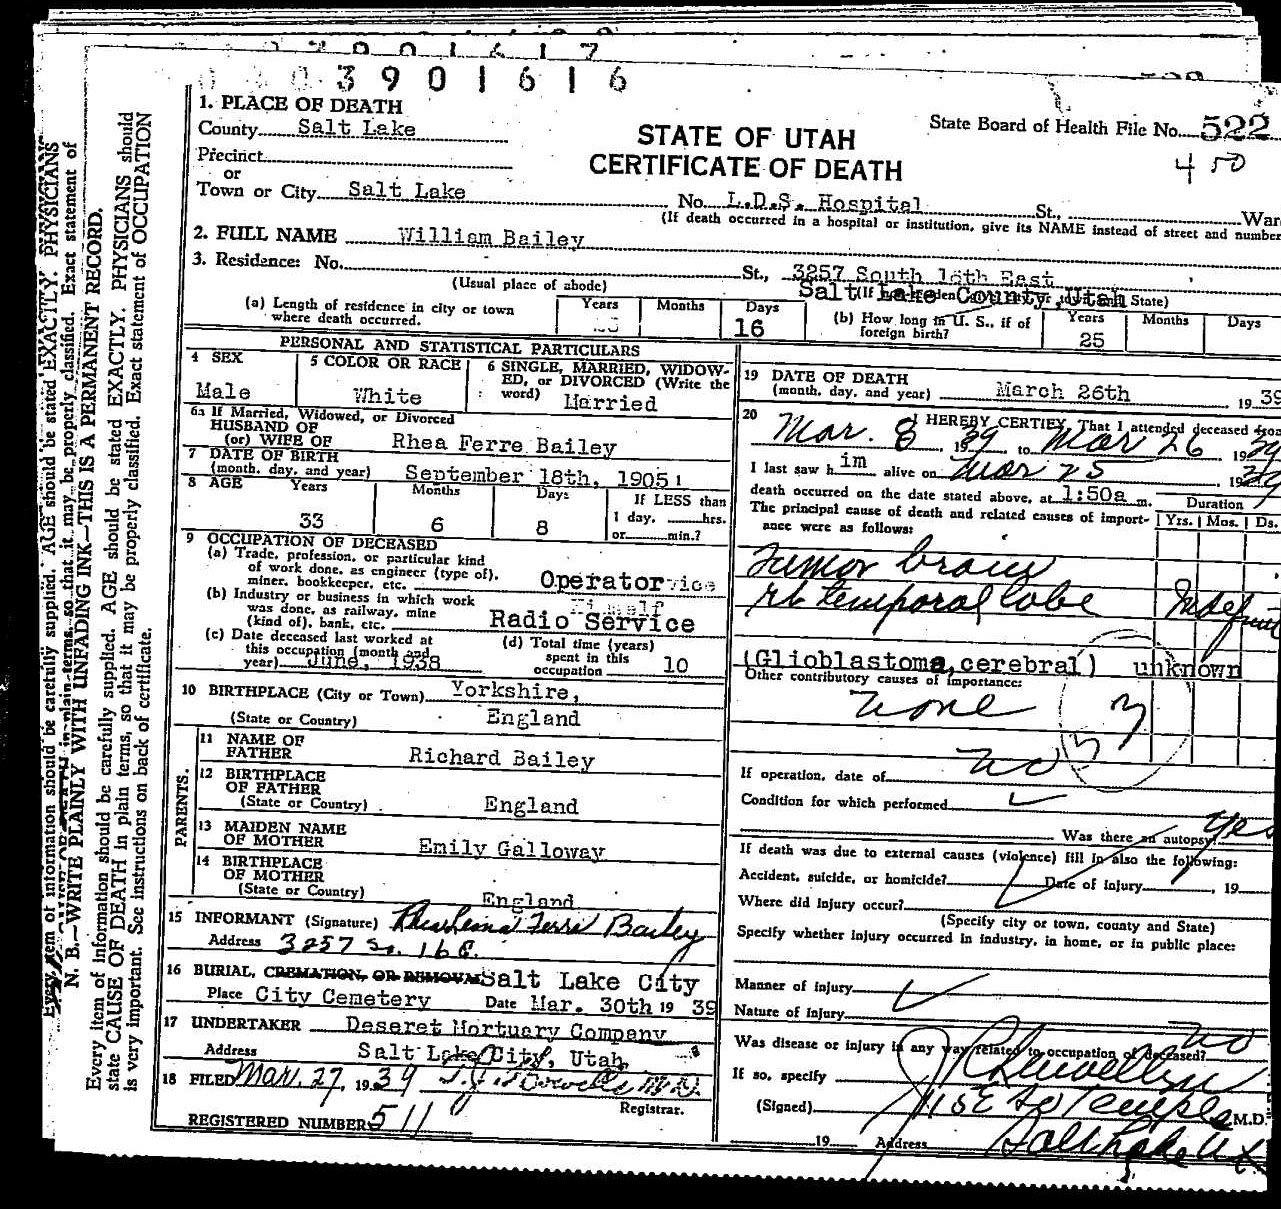 3901617
3901616
1. PLACE OF DEATH
County Salt Lake
Precinct
or
Town or City Salt Lake
STATE OF UTAH
CERTIFICATE OF DEATH
State Board of Health File No. 522
450
No. L.D.S. Hospital St., War
(If death occurred in a hospital or institution, give its NAME instead of street and number
2. FULL NAME William Bailey
3. Residence: No. St., 3257 South 16th East
(Usual place of abode)
Salt Lake County, Utah
State)
(a) Length of residence in city or town where death occurred.
Years Months Days
16
(b) How long in U. S., if of foreign birth?
Years Months Days
25
PERSONAL AND STATISTICAL PARTICULARS
4 SEX
Male
5 COLOR OR RACE
White
6 SINGLE, MARRIED, WIDOW-
ED, or DIVORCED (Write the
word) Married
6a If Married, Widowed, or Divorced
HUSBAND OF
(or) WIFE OF Rhea Ferre Bailey
7 DATE OF BIRTH
(month, day, and year) September 18th, 1905
8 AGE Years Months Days If LESS than
33 6 8 1 day, hrs.
or min.?
9 OCCUPATION OF DECEASED
(a) Trade, profession, or particular kind
of work done, as engineer (type of),
miner, bookkeeper, etc. Operator
(b) Industry or business in which work
was done, as railway, mine
(kind of), bank, etc. Radio Service
(c) Date deceased last worked at
this occupation (month and
year) June, 1938
(d) Total time (years)
spent in this
occupation 10
10 BIRTHPLACE (City or Town) Yorkshire,
(State or Country) England
PARENTS.
11 NAME OF
FATHER Richard Bailey
12 BIRTHPLACE
OF FATHER
(State or Country) England
13 MAIDEN NAME
OF MOTHER Emily Galloway
14 BIRTHPLACE
OF MOTHER
(State or Country) England
15 INFORMANT (Signature) Ferre Bailey
Address 3257 So. 16 E.
16 BURIAL, CREMATION, OR REMOVAL Salt Lake City
Place City Cemetery Date Mar. 30th 19 39
17 UNDERTAKER Deseret Mortuary Company
Address Salt Lake City, Utah
18 FILED Mar. 27, 19 39 M.D.
Registrar.
REGISTERED NUMBER 511
19 DATE OF DEATH
(month, day, and year) March 26th 19 39
20 I HEREBY CERTIFY, That I attended deceased from
Mar. 8, 19 39 to Mar 26 19 39
I last saw him alive on Mar 25 19 39
death occurred on the date stated above, at 1:50a m.
The principal cause of death and related causes of import-
ance were as follows:
Duration
Yrs. Mos. Ds.
Tumor brain
rt temporal lobe Indefinit
(Glioblastoma, cerebral) unknown
Other contributory causes of importance:
None
If operation, date of no
Condition for which performed
Was there an autopsy? Yes
If death was due to external causes (violence) fill in also the following:
Accident, suicide, or homicide? Date of injury , 19
Where did injury occur?
(Specify city or town, county and State)
Specify whether injury occurred in industry, in home, or in public place:
Manner of injury
Nature of injury
Was disease or injury in any way related to occupation of deceased? no
If so, specify
(Signed) J R Llewellyn M.D.
115 E So Temple
19 Address Salt Lake Ut
N. B.—WRITE PLAINLY WITH UNFADING INK—THIS IS A PERMANENT RECORD.
Every item of information should be carefully supplied. AGE should be stated EXACTLY. PHYSICIANS should
state CAUSE OF DEATH in plain terms, so that it may be properly classified. Exact statement of OCCUPATION
is very important. See instructions on back of certificate.